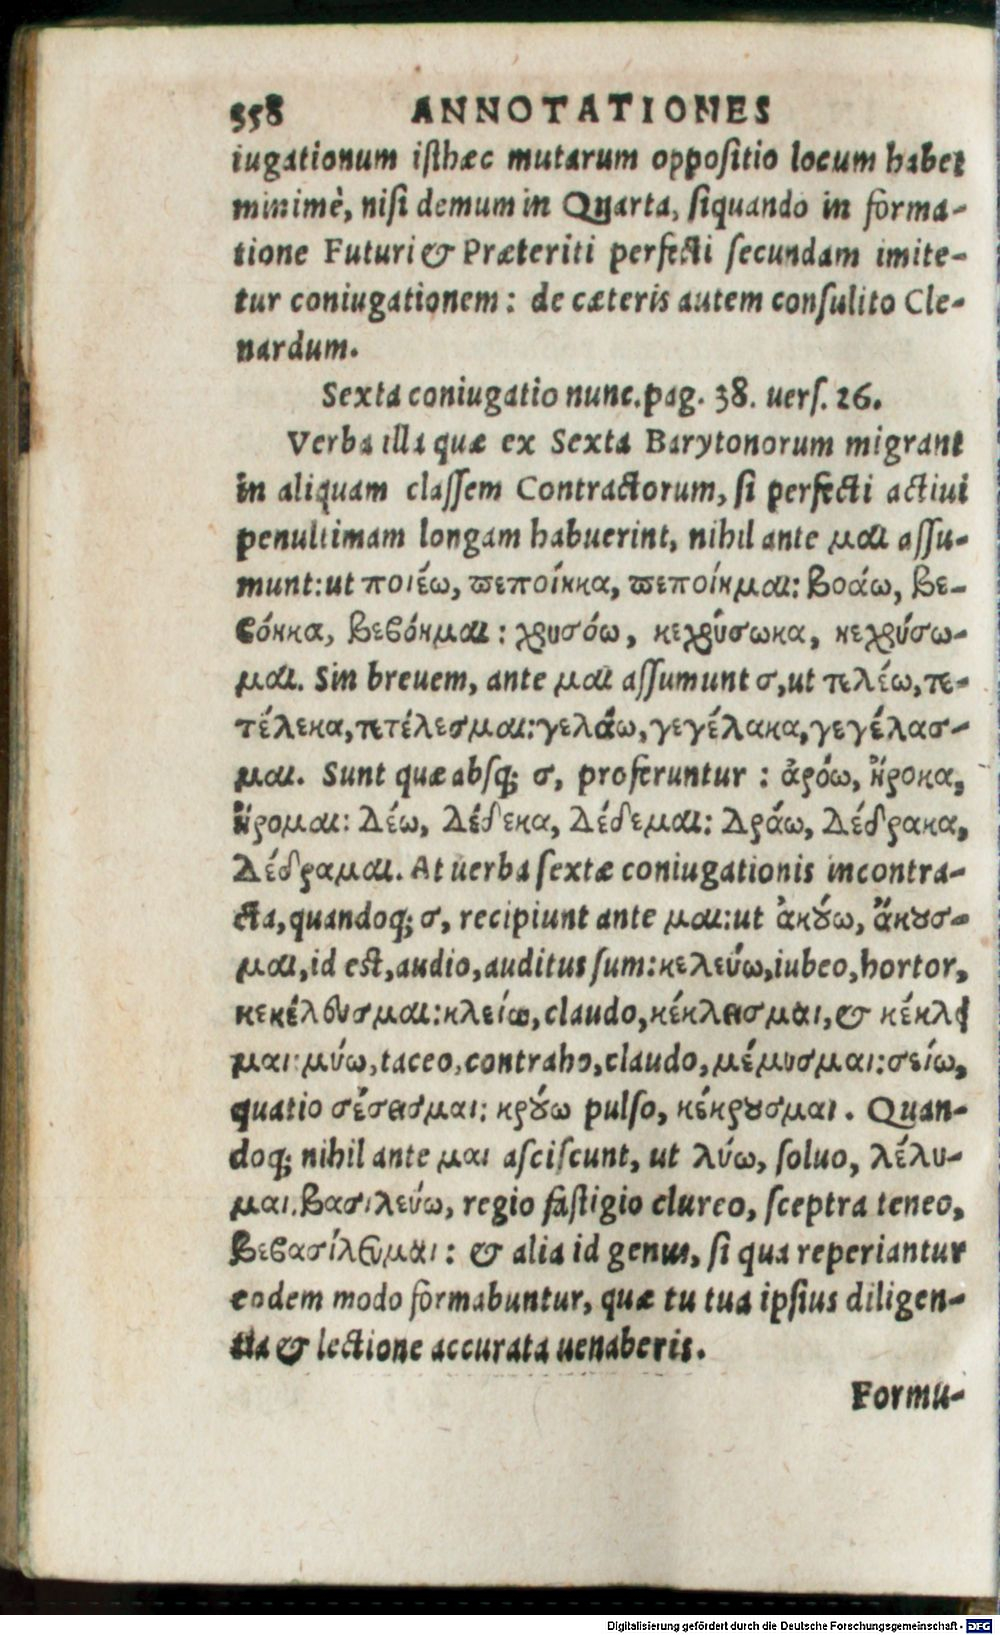 358 ANNOTATIONES
iugationum isthæc mutarum oppositio locum habet
minimè, nisi demum in Quarta, siquando in forma-
tione Futuri & Præteriti perfecti secundam imite-
tur coniugationem: de cæteris autem consulito Cle-
nardum.
Sexta coniugatio nunc. pag. 38. uers. 26.
Verba illa quæ ex Sexta Barytonorum migrant
in aliquam classem Contractorum, si perfecti actiui
penultimam longam habuerint, nihil ante μαι assu-
munt: ut ποιέω, πεποίηκα, πεποίημαι: βοάω, βε-
βόηκα, βεβόημαι: χρυσόω, κεχρύσωκα, κεχρύσω-
μαι. Sin breuem, ante μαι assumunt σ, ut τελέω, τε-
τέλεκα, τετέλεσμαι: γελάω, γεγέλακα, γεγέλασ-
μαι. Sunt quæ absq; σ, proferuntur: ἀρόω, ἤροκα,
ἤρομαι: Δέω, Δέδεκα, Δέδεμαι: Δράω, Δέδρακα,
Δέδραμαι. At uerba sextæ coniugationis incontra-
cta, quandoq; σ, recipiunt ante μαι: ut ἀκούω, ἄκουσ-
μαι, id est, audio, auditus sum: κελεύω, iubeo, hortor,
κεκέλευσμαι: κλείω, claudo, κέκλεισμαι, & κέκλει
μαι: μύω, taceo, contraho, claudo, μέμυσμαι: σείω,
quatio σέσεισμαι: κρούω pulso, κέκρουσμαι. Quan-
doq; nihil ante μαι asciscunt, ut λύω, soluo, λέλυ-
μαι. βασιλεύω, regio fastigio clureo, sceptra teneo,
βεβασίλευμαι: & alia id genus, si qua reperiantur
eodem modo formabuntur, quæ tu tua ipsius diligen-
tia & lectione accurata uenaberis.
Formu-
Digitalisierung gefördert durch die Deutsche Forschungsgemeinschaft - DFG